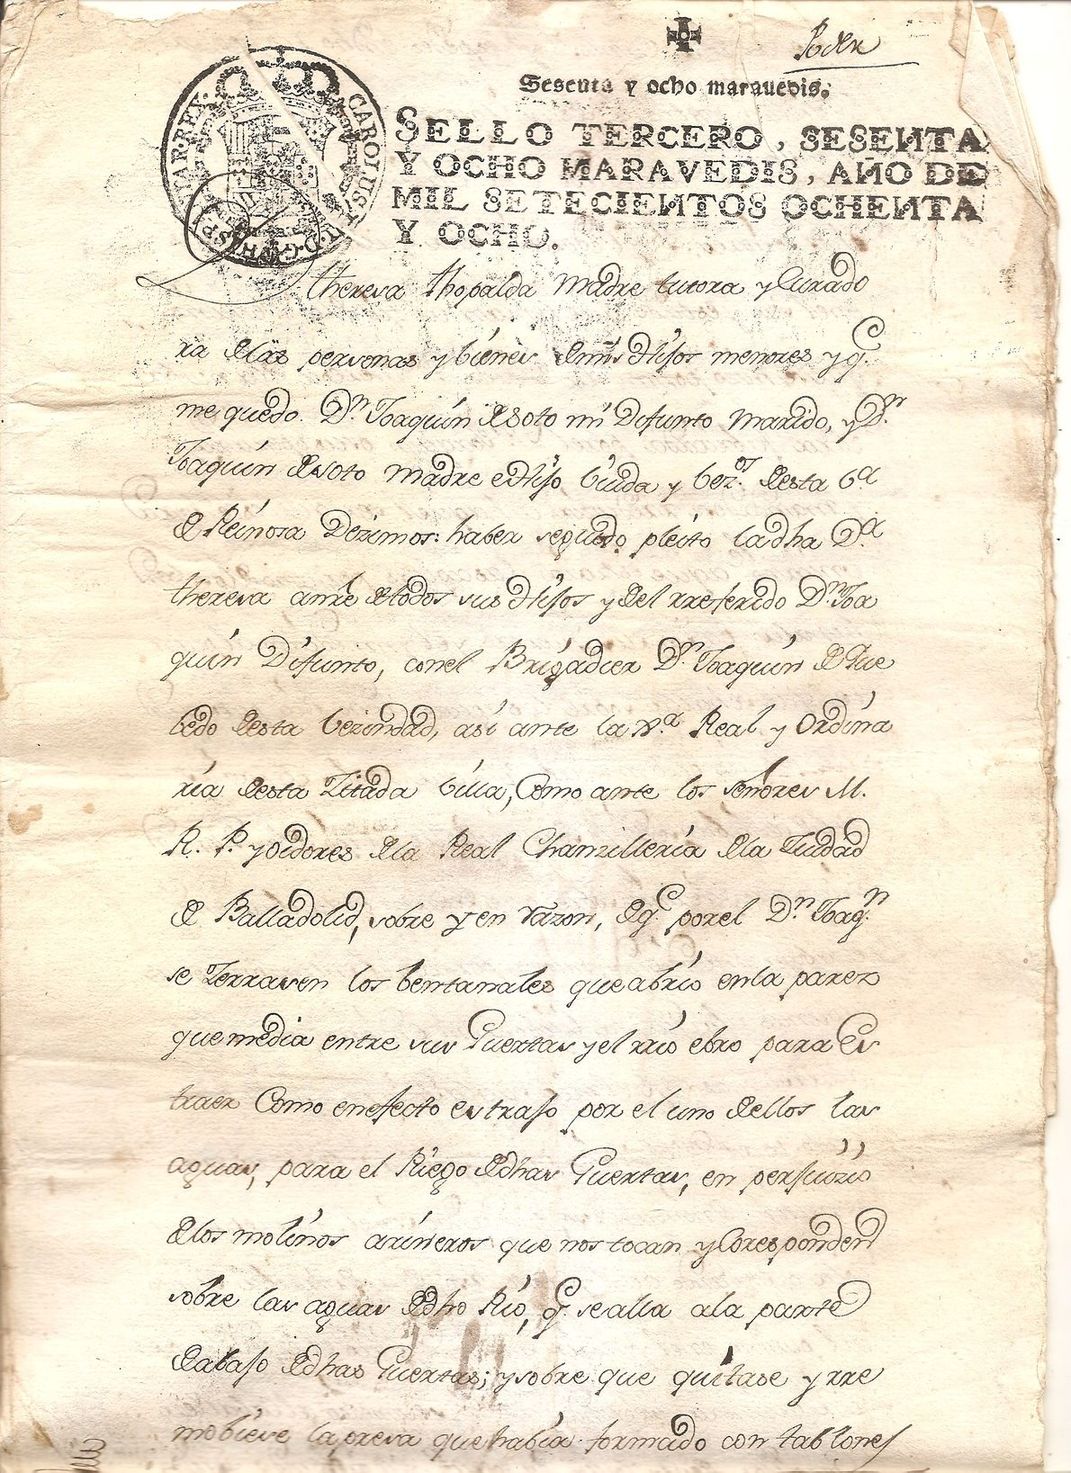 Poder
Sesenta y ocho maravedis.
SELLO TERCERO, SESENTA
Y OCHO MARAVEDIS, AÑO DE
MIL SETECIENTOS OCHENTA
Y OCHO.
CAROLUS III D.G. HISPANIAR REX
Theresa Thopalda Madre tutora y Curado
ra de las personas y bienes de mis Hijos menores y q.e
me quedo Dn. Joaquin de Soto mi Difunto Marido, y Dn.
Joaquin de Soto Madre e Hijo Viuda y bez.os desta Va
de Reinosa Dezimos: haber seguido pleito la dha Da.
theresa antte de todos sus Hijos y del rreferido Dn. Joa
quin Difunto, con el Brigadier Dn. Joaquin de Que
bedo desta bezindad, asi ante la Real y Ordina
ria desta Zitada billa, Como ante los señores M.
R. P. y oidores de la Real Chanzilleria de la Ciudad
de Balladolid, sobre y en razon, de q.e por el Dn. Joaq.n
se Zerrasen los bentanales que abrio en la parez
que media entre sus Guertas y el rrio ebro para Es
traer Como en efecto estrajo por el uno dellos las
aguas, para el Riego de dhas Guertas, en perjuizio
de los molinos arineros que nos tocan y Coresponden
sobre las aguas de dho Rio, q.e se alla a la partte
de abajo de dhas Guertas; y sobre que quitase y rre
mobiese la presa que habia formado con tablones